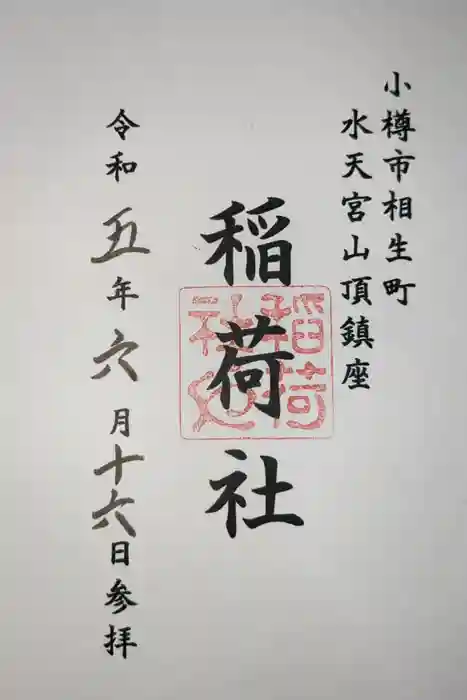 小樽市相生町
水天宮山頂鎮座
稲荷社
稲荷社
令和五年六月十六日参拝